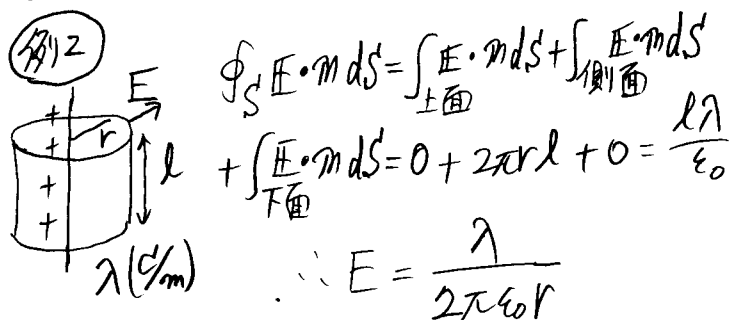 例2
E
r
l
λ(C/m)
∮_S 𝔼・𝕟dS = ∫_上面 𝔼・𝕟dS + ∫_側面 𝔼・𝕟dS
+ ∫_下面 𝔼・𝕟dS = 0 + 2πrl + 0 = lλ/ε₀
∴ E = λ/2πε₀r